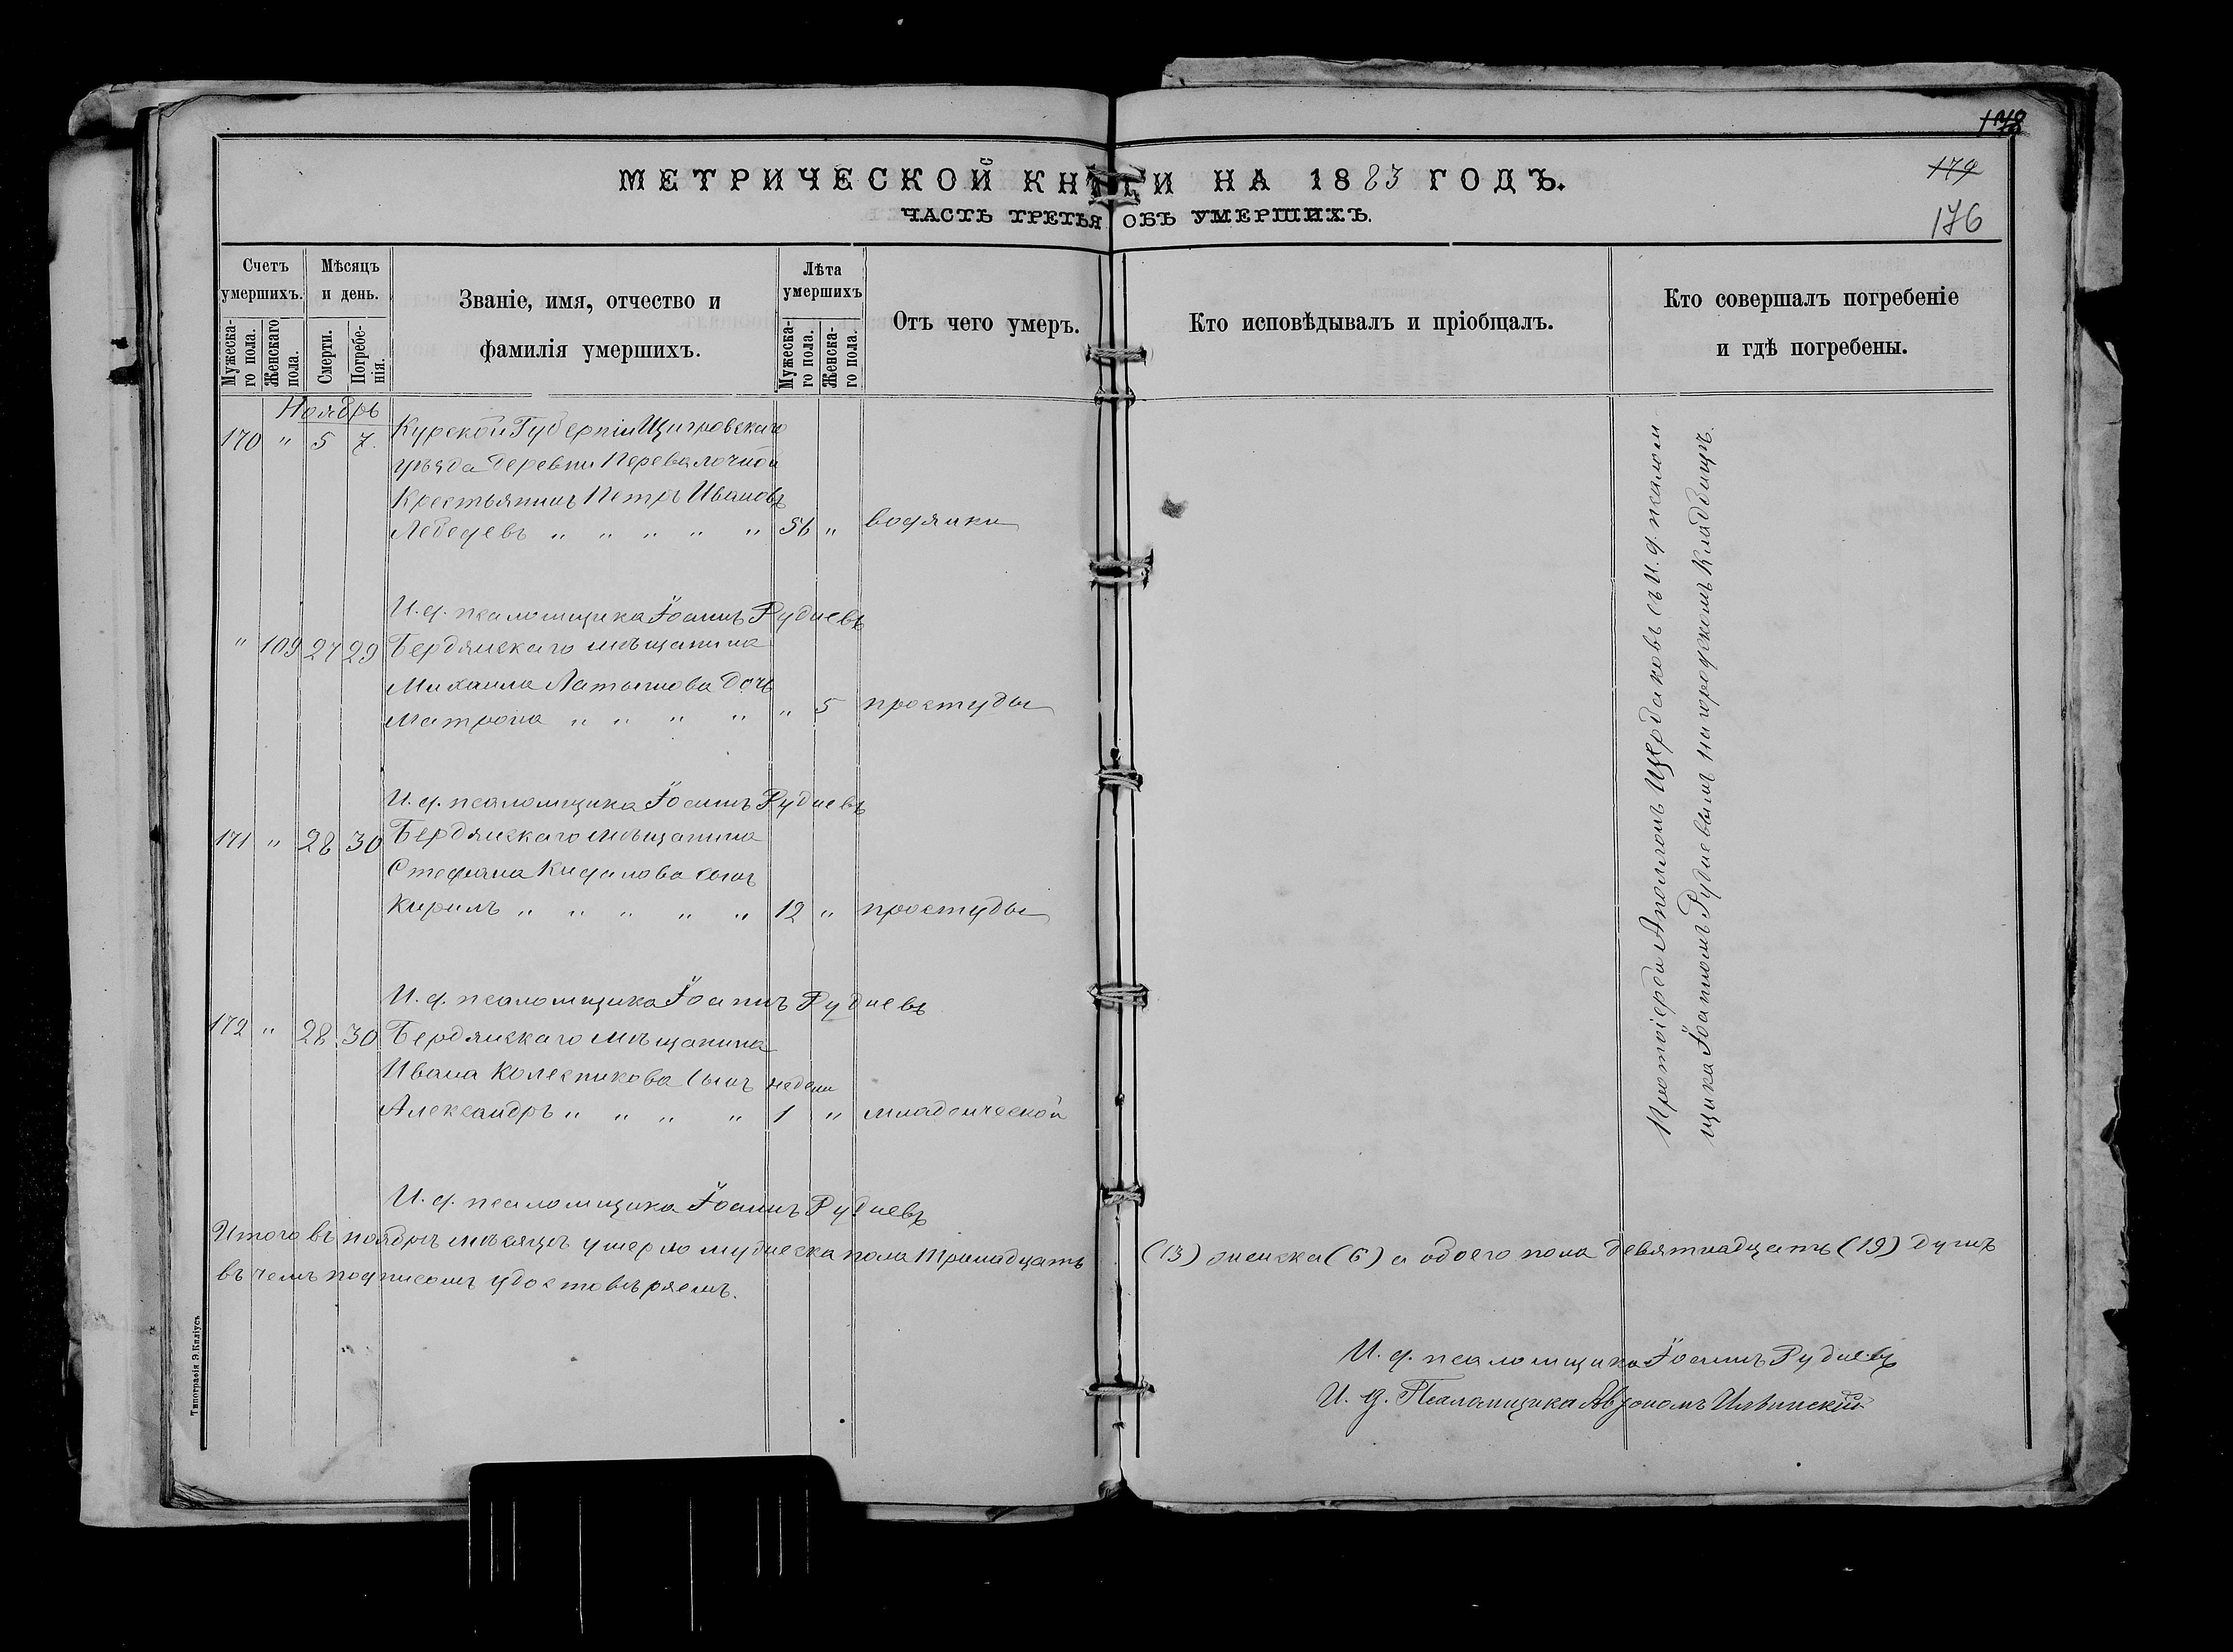 179
176
МЕТРИЧЕСКОЙ КНИГИ НА 1883 ГОДЪ.
ЧАСТЬ ТРЕТЬЯ ОБЪ УМЕРШИХЪ.
Счетъ умершихъ.
Мужеска-го пола.
Женскаго пола.
Мѣсяцъ и день.
Смерти.
Погребе-нія.
Званіе, имя, отчество и
фамилія умершихъ.
Лѣта умершихъ
Мужеска-го пола.
Женска-го пола.
Отъ чего умеръ.
Кто исповѣдывалъ и пріобщалъ.
Кто совершалъ погребеніе
и гдѣ погребены.
Ноябрь
170 " 5 7. Курской Губерніи Щигровскаго
уѣзда деревни Перевалочной
Крестьянинъ Петръ Ивановъ
Лебедевъ " " " " " 56 " водянки
И. д. псаломщика Іоаннъ Рудневъ
" 109 27 29 Бердянскаго мѣщанина
Михаила Латышова дочь
Матрона " " " " " 5 простуды
И. д. псаломщика Іоаннъ Рудневъ
171 " 28 30 Бердянскаго мѣщанина
Стефана сынъ
Кирилъ " " " " " 12 " простуды
И. д. псаломщика Іоаннъ Рудневъ
172 " 28 30 Бердянскаго мѣщанина
Ивана Колесникова сынъ недели
Александръ " " " " 1 " младенческой
И. д. псаломщика Іоаннъ Рудневъ
Итого въ ноябрѣ мѣсяцѣ умерло мужеска пола тринадцать (13) женска (6) а обоего пола девятнадцать (19) душъ
въ чемъ подписомъ удостовѣряемъ.
Протоіерей Аполлонъ Щербаковъ съ И. д. псалом
щика Іоанномъ Рудневымъ на городскомъ Кладбищѣ.
И. д. псаломщика Іоаннъ Рудневъ
И. д. Псаломщика Ильинскій
Типографія Э. Киліусъ